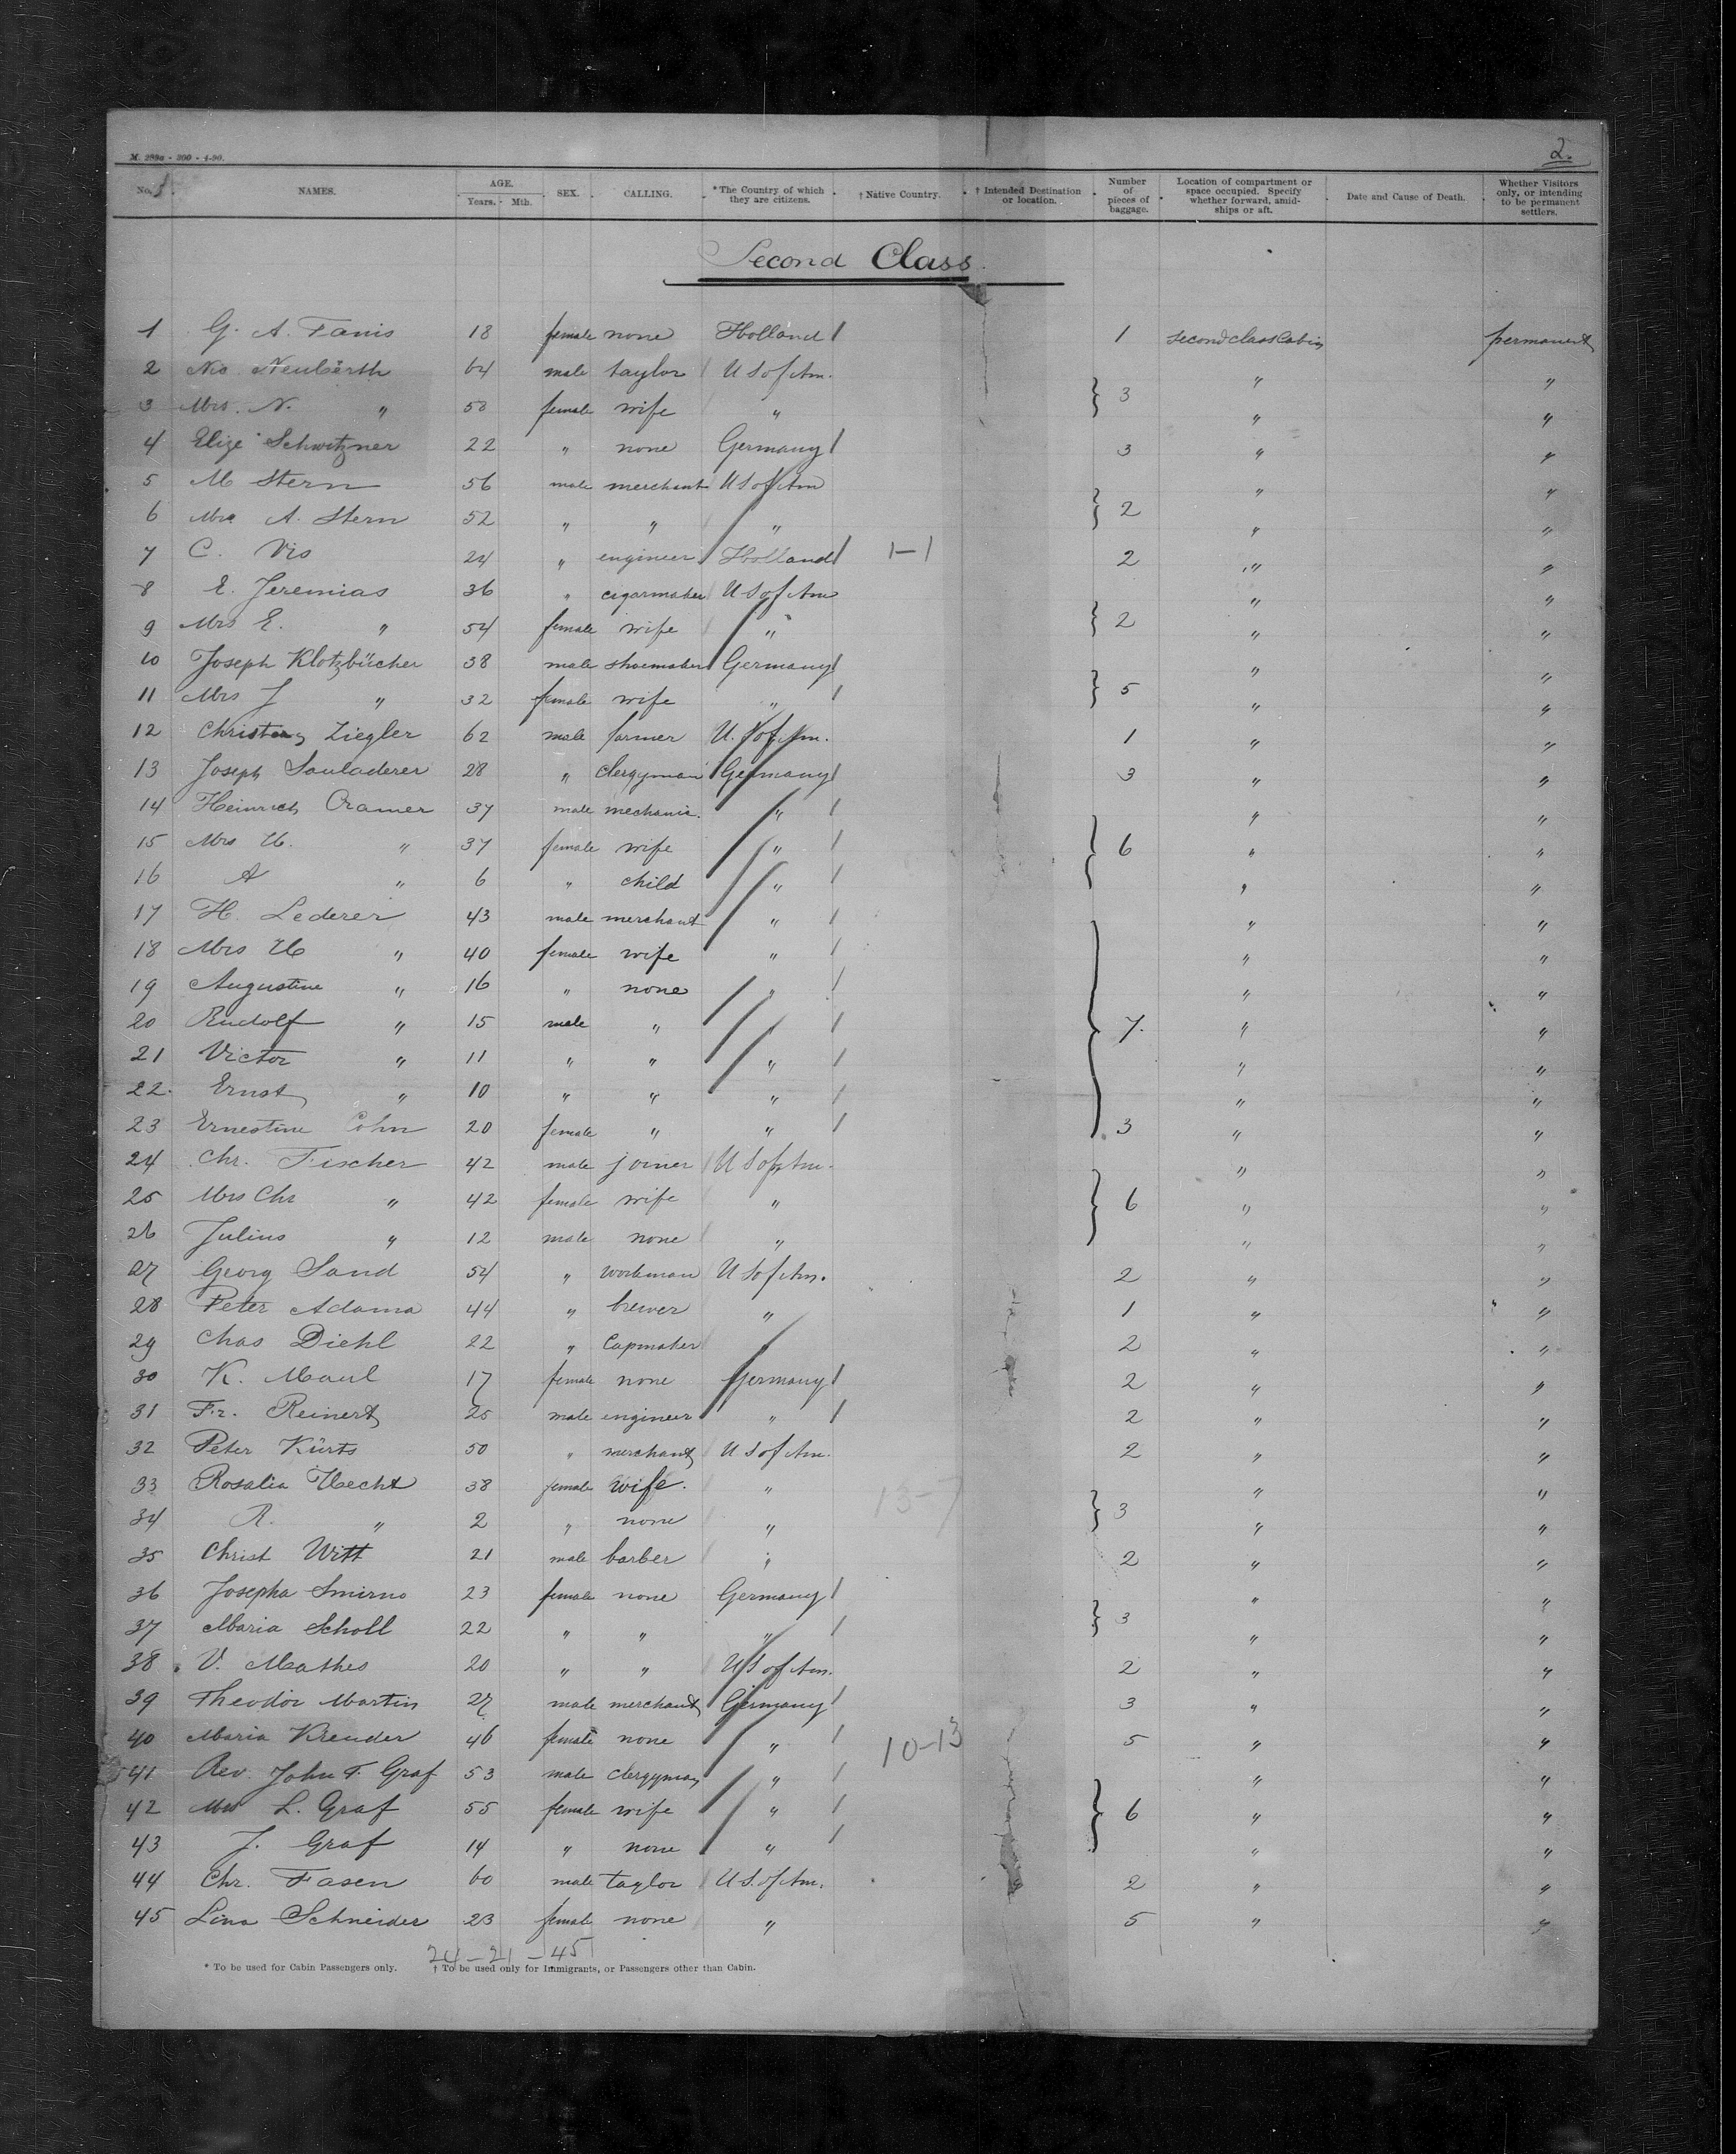 M. 299a - 300 - 4-90.
2.
No. NAMES. AGE. Years. Mth. SEX. CALLING. *The Country of which they are citizens. † Native Country. † Intended Destination or location. Number of pieces of baggage. Location of compartment or space occupied. Specify whether forward, amidships or aft. Date and Cause of Death. Whether Visitors only, or intending to be permanent settlers.
Second Class.
1 G. A. Fanis 18 female none Holland 1 second class Cabin permanent
2 Nic. Neuberth 64 male taylor U S of Am. " "
3 Mrs. N. " 58 female wife " } 3 " "
4 Elize Schwitzner 22 " none Germany 3 " "
5 M Stern 56 male merchant U S of Am " "
6 Mrs A. Stern 52 " " " } 2 " "
7 C. Vis 24 " engineer Holland 1-1 2 " "
8 E. Jeremias 36 " cigarmaker U S of Am " "
9 Mrs E. " 54 female wife " } 2 " "
10 Joseph Klotzbücher 38 male shoemaker Germany " "
11 Mrs J " 32 female wife " } 5 " "
12 Christian Ziegler 62 male farmer U. S of Am. 1 " "
13 Joseph Sauladerer 28 " clergyman Germany 3 " "
14 Heinrich Cramer 37 male mechanic. " " "
15 Mrs H. " 37 female wife " } 6 " "
16 A " 6 " child " " "
17 H. Lederer 43 male merchant " " "
18 Mrs H " 40 female wife " " "
19 Augustine " 16 " none " " "
20 Rudolf " 15 male " " } 7. " "
21 Victor " 11 " " " " "
22. Ernst " 10 " " " " "
23 Ernestine Cohn 20 female " " 3 " "
24 Chr. Fischer 42 male joiner U S of Am. " "
25 Mrs Chr " 42 female wife " } 6 " "
26 Julius " 12 male none " " "
27 Georg Sand 54 " workman U S of Am. 2 " "
28 Peter Adama 44 " brewer " 1 " "
29 Chas Diehl 22 " Capmaker " 2 " "
30 K. Maul 17 female none Germany 2 " "
31 Fr. Reinert 25 male engineer " 2 " "
32 Peter Kürts 50 " merchant U S of Am. 2 " "
33 Rosalia Hecht 38 female wife. " 13-7 " "
34 R. " 2 " none " } 3 " "
35 Christ Witt 21 male barber " 2 " "
36 Josepha Smirno 23 female none Germany " "
37 Maria Scholl 22 " " " } 3 " "
38 V. Mathes 20 " " U S of Am. 2 " "
39 Theodor Martin 27 male merchant Germany 3 " "
40 Maria Kreuder 46 female none " 10-13 5 " "
41 Rev. John F. Graf 53 male clergyman " " "
42 Mrs L. Graf 55 female wife " } 6 " "
43 J. Graf 14 " none " " "
44 Chr. Fasen 60 male taylor U S. of Am. 2 " "
45 Lina Schneider 23 female none " 5 " "
24-21-45
* To be used for Cabin Passengers only. † To be used only for Immigrants, or Passengers other than Cabin.